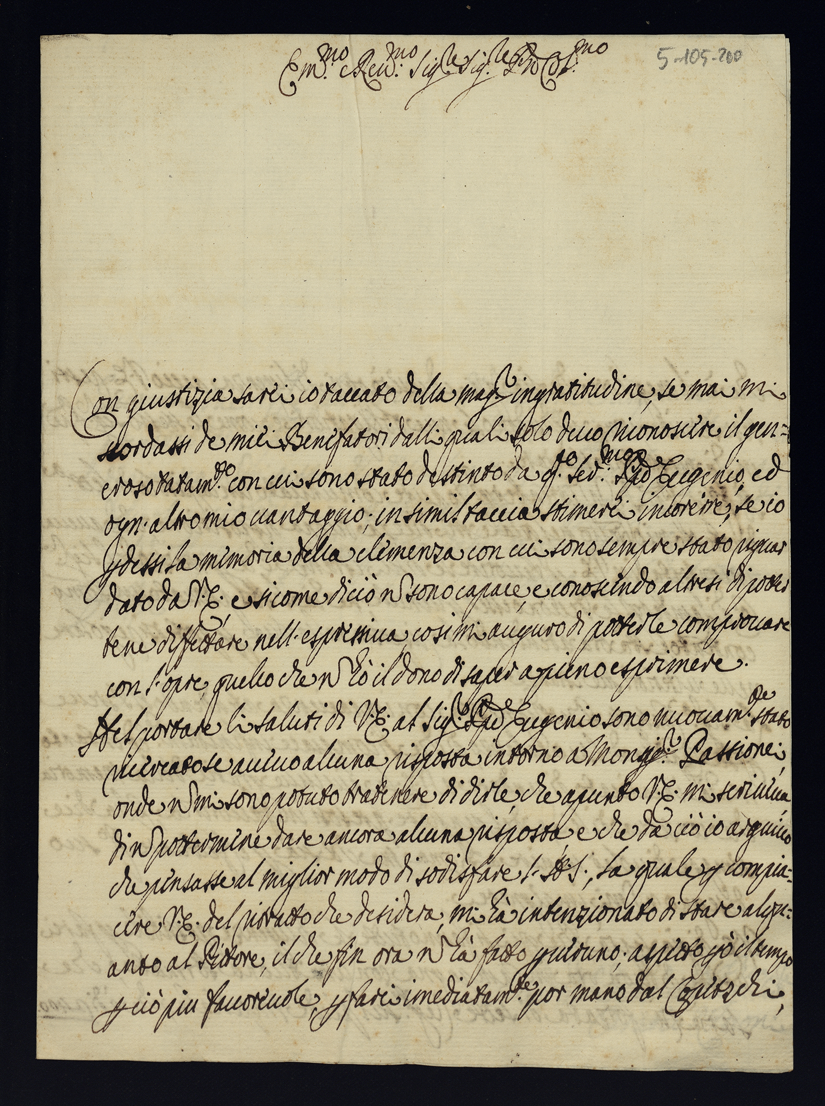 Em.mo e Reu.mo Sig.re Sig.re Pr'on Col.mo
5-105-200
Con giustizia sarei io taccato della mag.r ingratitudine, se mai mi
scordassi de miei Benifatori dalli quali solo deuo riconoscere il gen=
eroso tratam.to con cui sono stato destinto da q.to Ser.mo Eugenio, ed
ogn' altro mio uantaggio; in simil taccia stimerei incorere, se io
p dessi la memoria della clemenza con cui sono sempre stato riguar
dato da V.E. e sicome di ciò n sono capace, e conoscendo altresi di poter
bene difettare nell' espressiua, cosi mi auguro di potterle comprouare
con l' opre quello che n hò il dono di saper a pieno esprimere.
Nel portare li saluti di V.E. al Sig.r Eugenio sono nuouam.te stato
ricercato se auiuo alcuna risposta intorno a Mong.r Passionei,
onde n mi sono potuto tratenere di dirle, che apunto V.E. mi scriuiua
di n pottermine dare ancora alcuna risposta, e che da ciò io arguiuo
che pinsasse al miglior modo di sodisfare l' A.S., la quale p compia=
cere V.E. del ritratto che desidera, mi hà intenzionato di stare alqu=
anto al Pittore, il che fin ora n hà fatto p uiruno; aspetto p ò il tempo
p ciò piu fauoreuole, p farei imediatam.te por mano dal